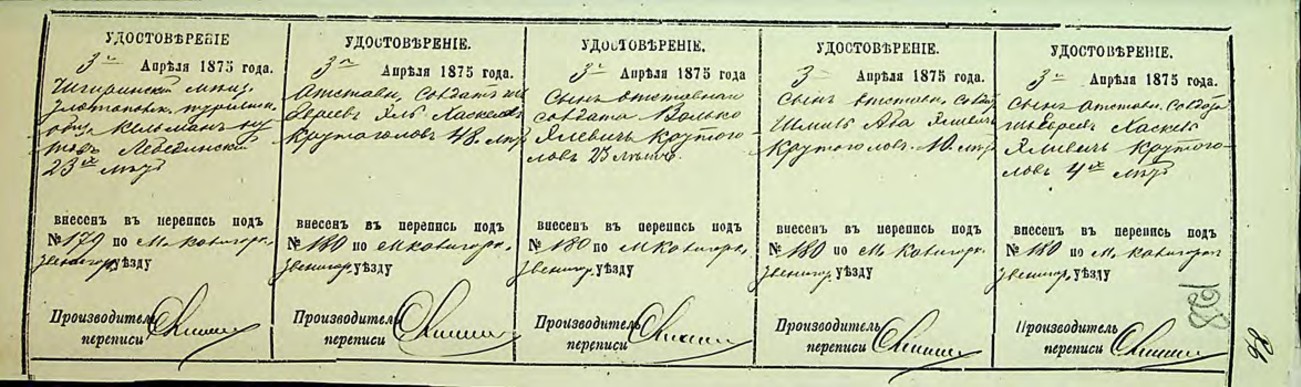 УДОСТОВѢРЕНІЕ
3 Апрѣля 1875 года.
Чигиринскій мѣщ.
Златопольск.
общ. Кельманъ
Лебединскій
23хъ лѣтъ
внесенъ въ перепись подъ
№ 179 по м. Конигорк.
Звенигор. уѣзду
Производитель
переписи
УДОСТОВѢРЕНІЕ.
3 Апрѣля 1875 года.
Отставн. Солдатъ изъ
Евреевъ Яль Хаскелевъ
Крутоголовъ 48. лѣтъ
внесенъ въ перепись подъ
№ 180 по м Конигорк.
Звенигор. уѣзду
Производитель
переписи
УДОСТОВѢРЕНІЕ.
3 Апрѣля 1875 года
Сынъ отставнаго
солдата Волько
Ялевичъ Крутого-
ловъ 23 лѣтъ
внесенъ въ перепись подъ
№ 180 по м Конигорк.
Звенигор. уѣзду
Производитель
переписи
УДОСТОВѢРЕНІЕ.
3 Апрѣля 1875 года.
Сынъ отставн. Солдата
Шмиль Аба Ялевичъ
Крутоголовъ. 10. лѣтъ
внесенъ въ перепись подъ
№ 180 по м. Конигорк.
Звенигор. уѣзду
Производитель
переписи
УДОСТОВѢРЕНІЕ.
3 Апрѣля 1875 года.
Сынъ отставн. Солдата
изъ Евреевъ Хаскель
Ялевичъ Крутого-
ловъ 4хъ лѣтъ
внесенъ въ перепись подъ
№ 180 по м. Конигорк
Звенигор. уѣзду
Производитель
переписи